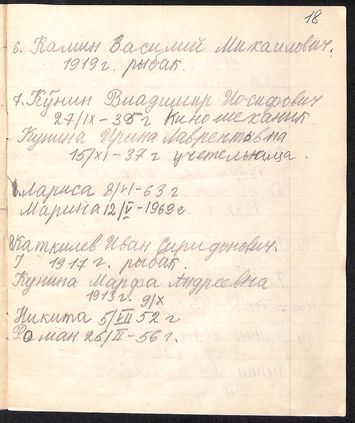 18
6. Камин Василий Михаилович.
1919 г. рыбак.
7. Кунин Владимир Иосифович
27/IX-35 г Киномеханик
Кунина Ирина Лаврентьвна
15/XI-37 г учетельница.
Лариса 8/VI-63 г.
Марина 12/V-1969 г
Каткилев Иван Спридонович.
1917 г. рыбак.
Кунина Марфа Андреевна
1913 г. 9/X
Никита 5/VII 52 г
Роман 25/II-56 г.